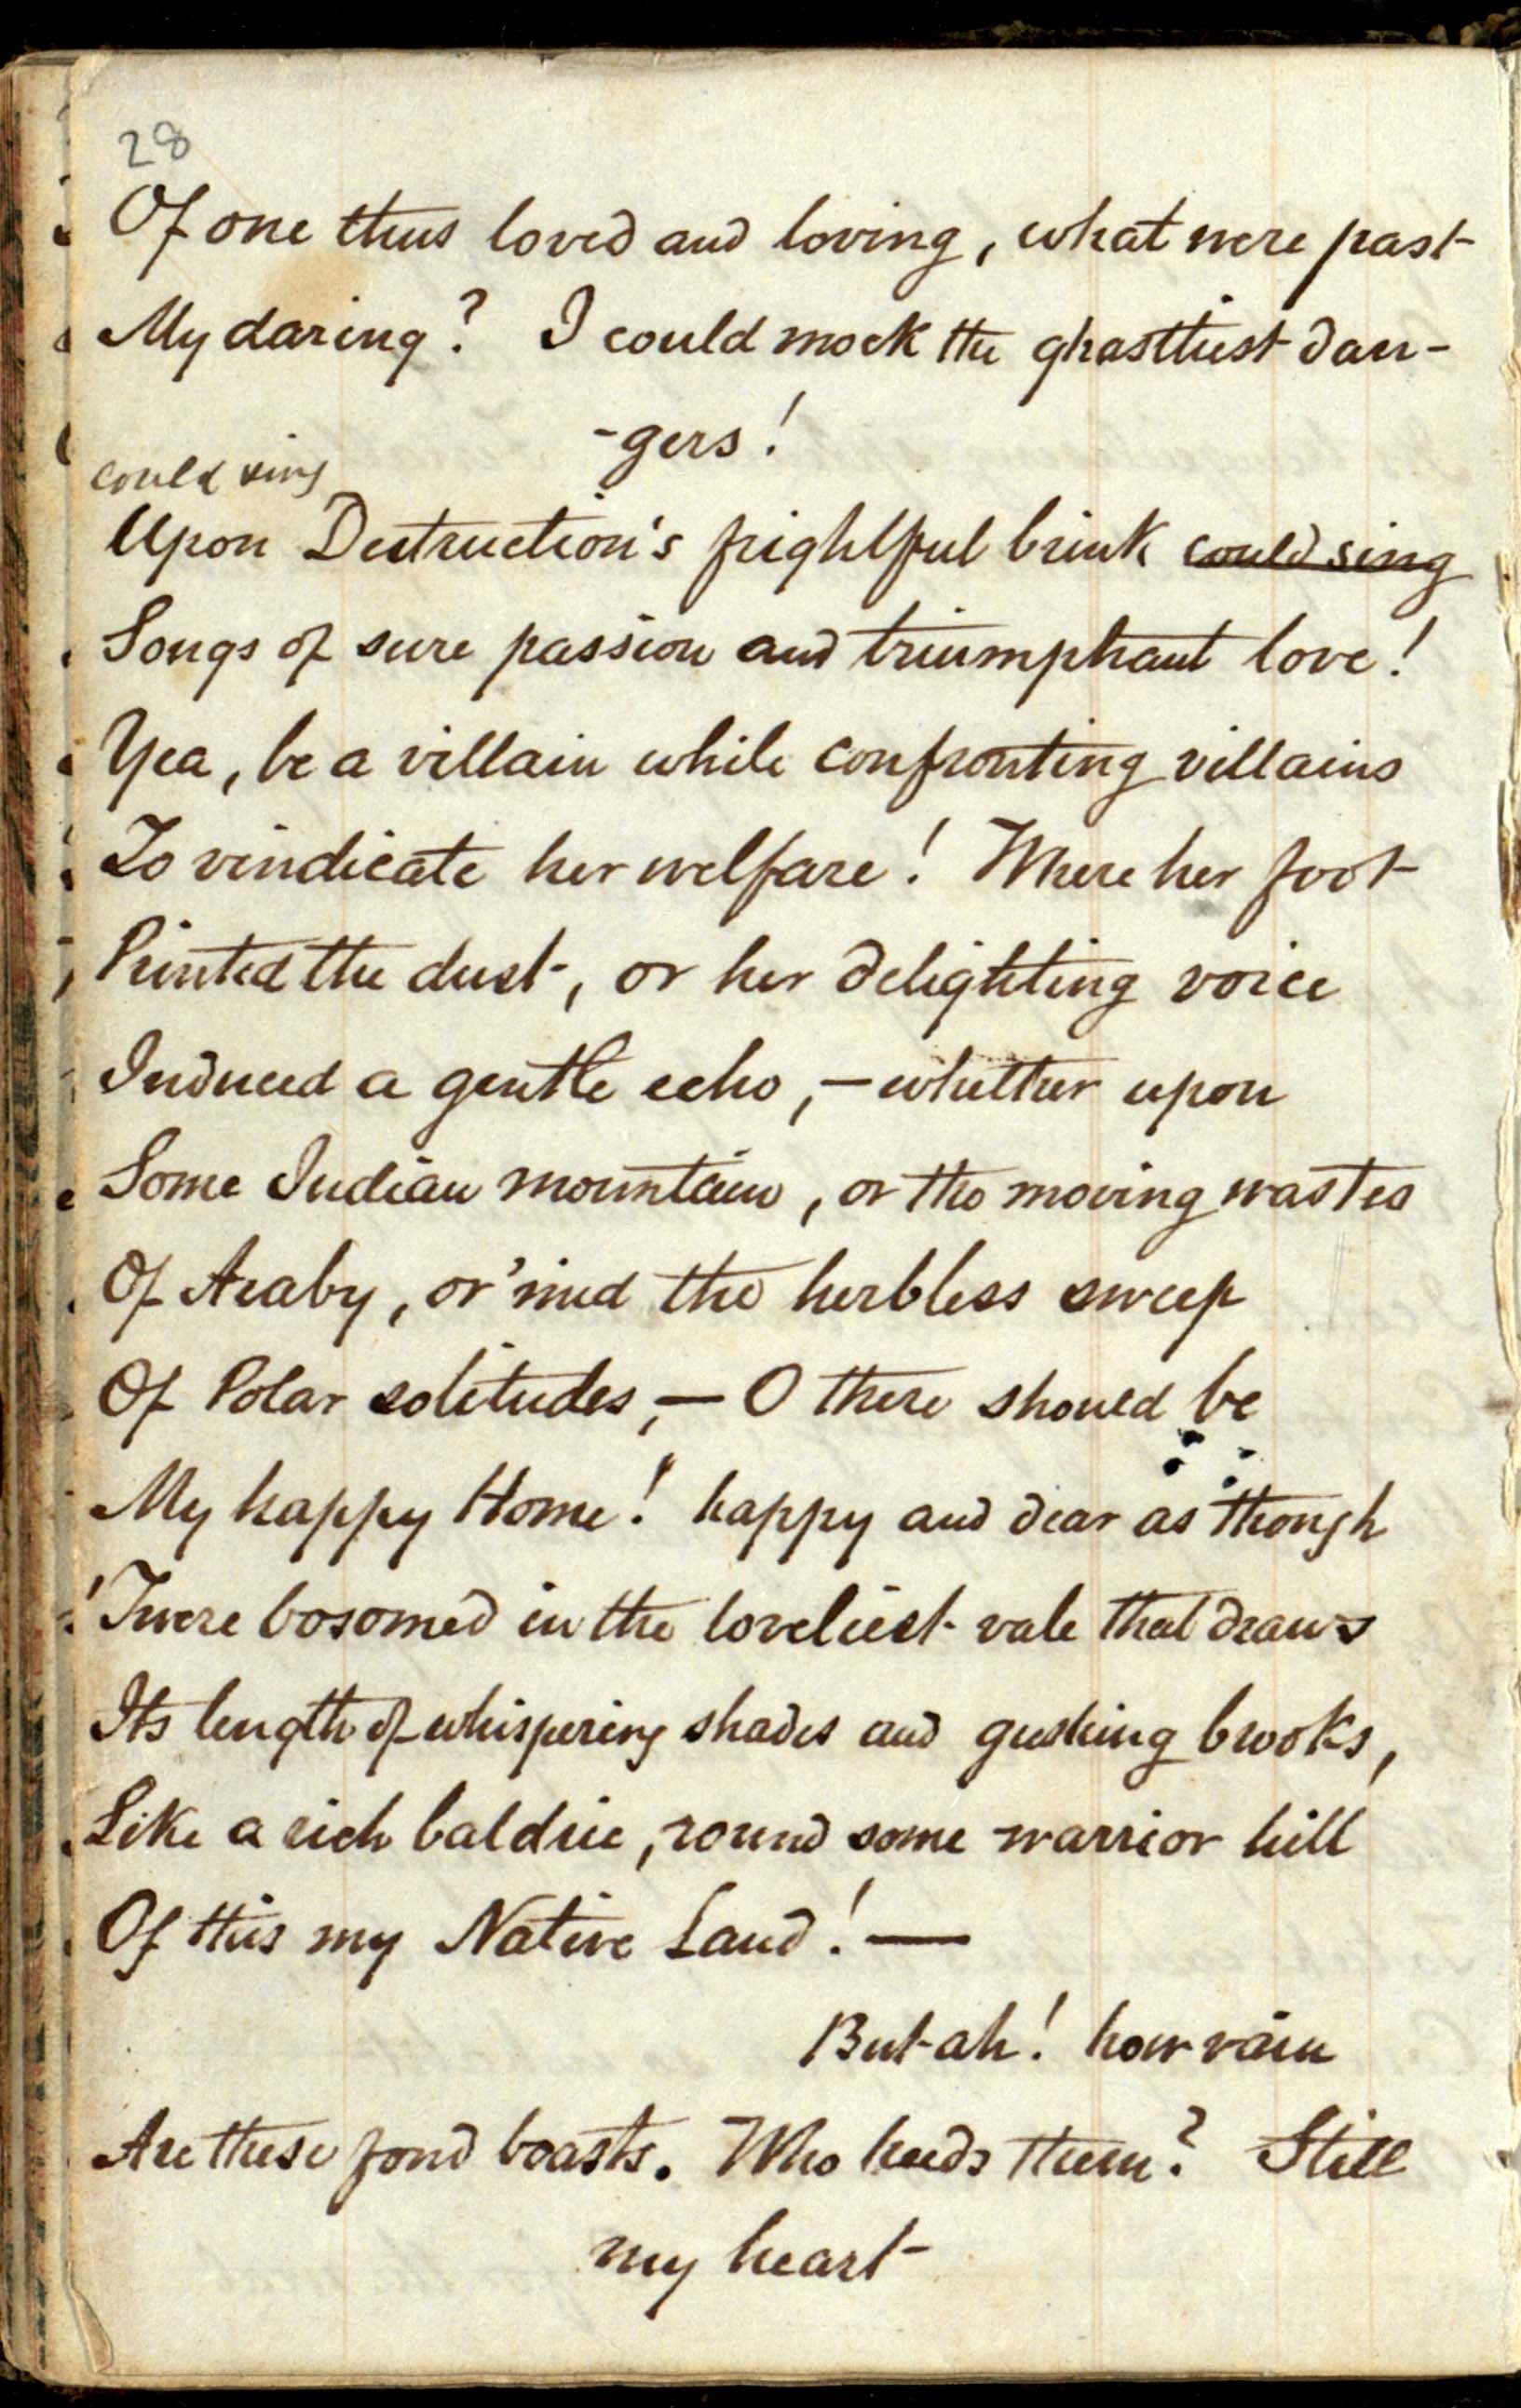 28
Of one thus loved and loving, what were past
My daring? I could mock the ghastliest dan-
-gers!
could sing
Upon Destruction's frightful brink ~~could sing~~
Songs of sure passion and triumphant love!
Yea, be a villain while confronting villains
To vindicate her welfare! Where her foot
Printed the dust, or her delighting voice
Induced a gentle echo,—whether upon
Some Indian mountain, or the moving wastes
Of Araby, or 'mid the herbless sweep
Of Polar solitudes,— O there should be
My happy Home! happy and dear as though
'Twere bosomed in the loveliest vale that draws
Its length of whispering shades and gushing brooks,
Like a rich baldric, round some warrior hill
Of this my Native Land!—
But ah! how vain
Are these fond boasts. Who heeds them? Still
my heart